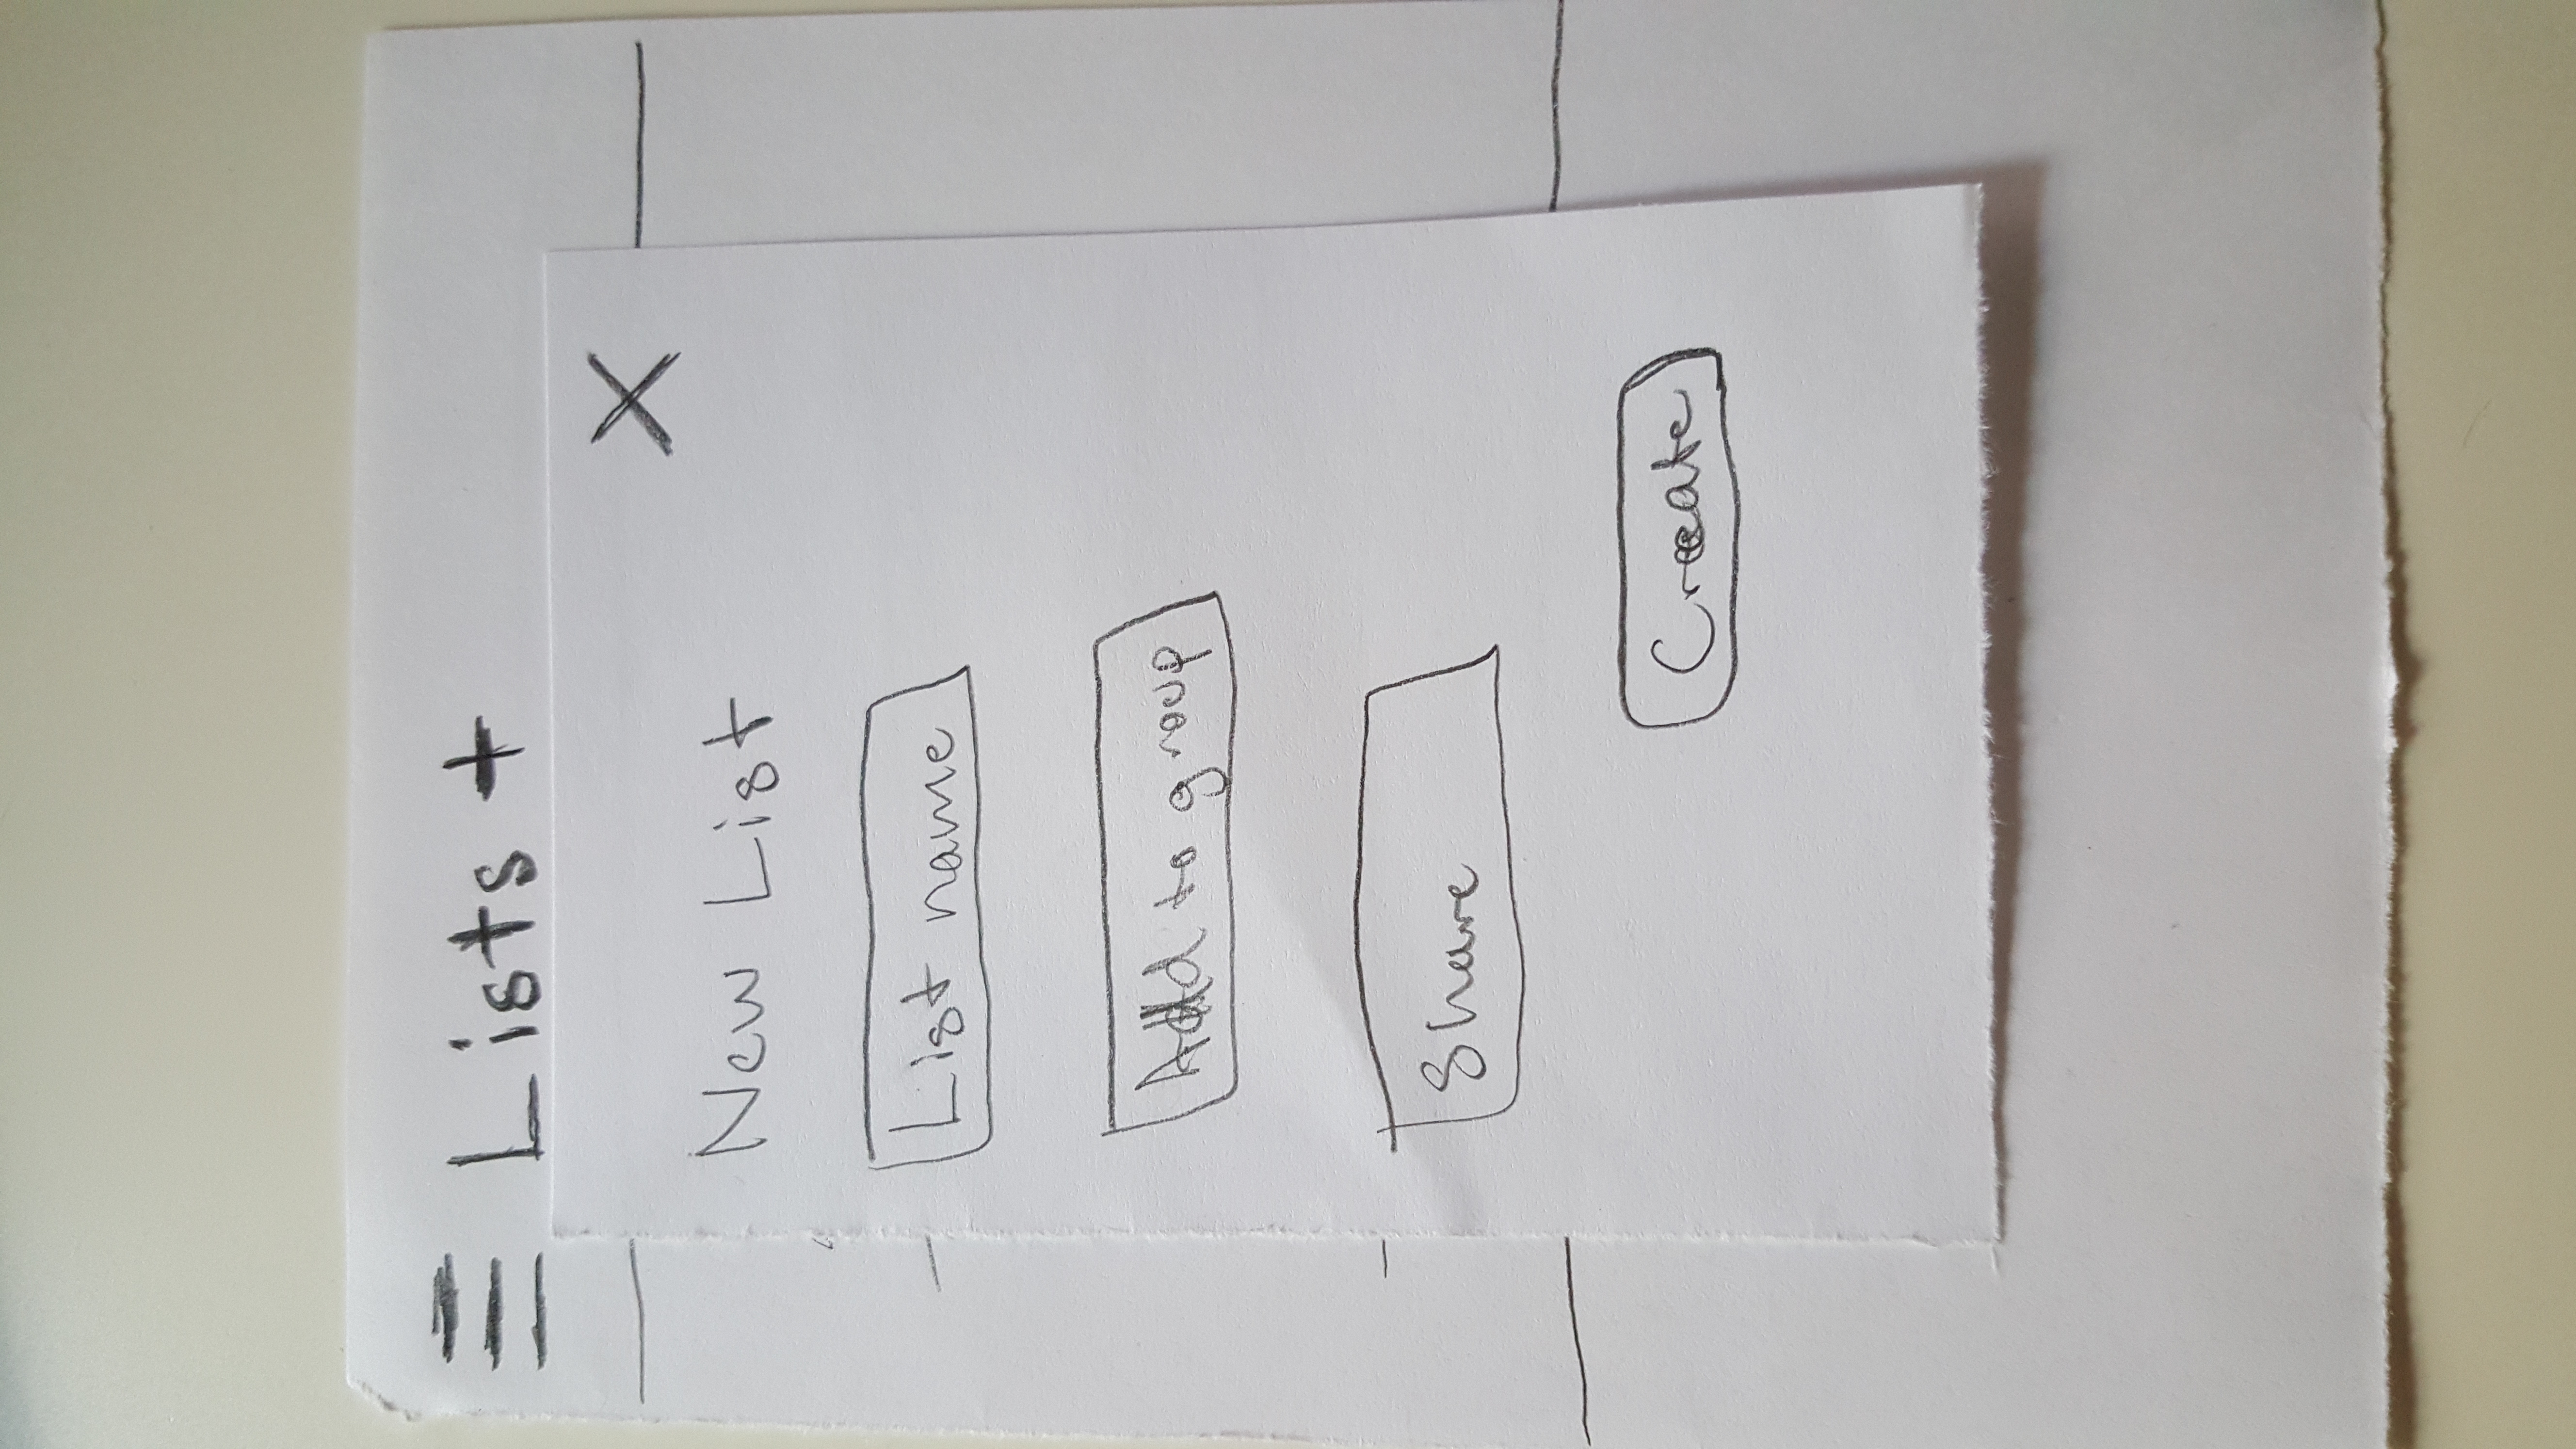 Lists +
X
New List
List name
Add to group
Share
Create